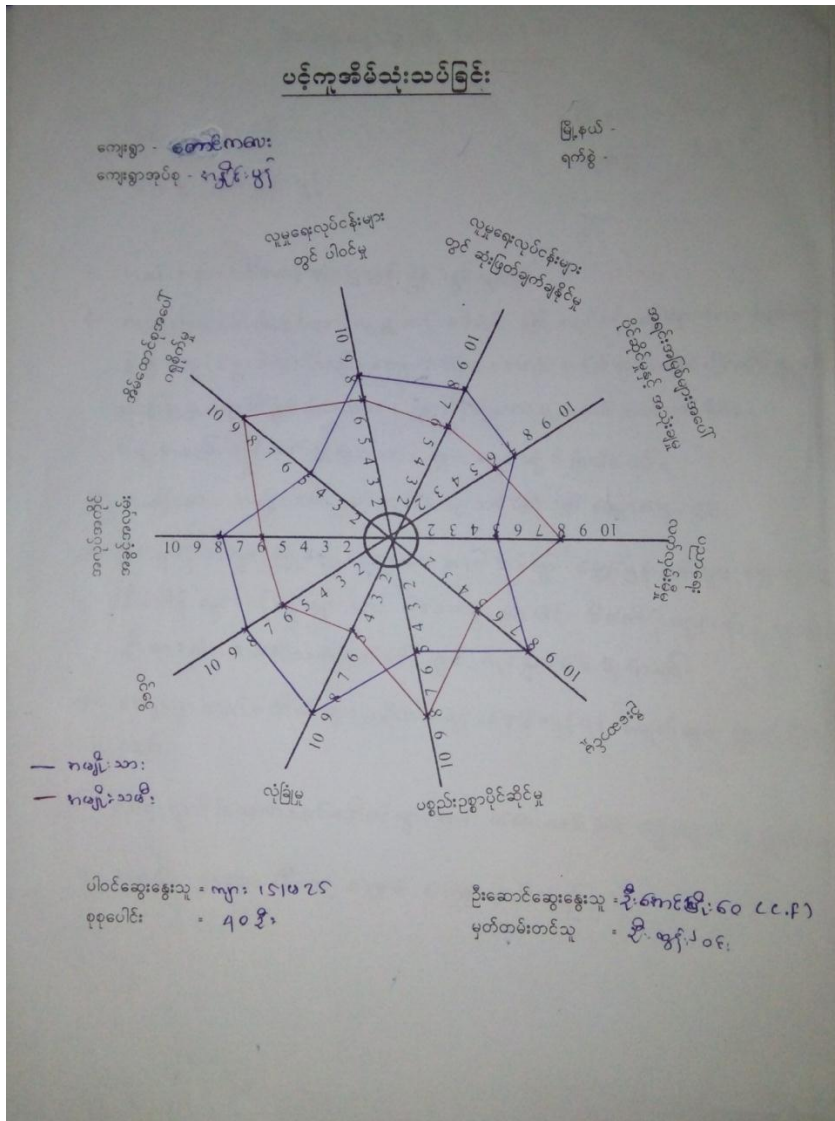 ပင့်ကူအိမ်သုံးသပ်ခြင်း
ကျေးရွာ - တောင်ကလေး
ကျေးရွာအုပ်စု -
မြို့နယ် -
ရက်စွဲ -
လူမှုရေးလုပ်ငန်းများ
တွင် ပါဝင်မှု
လူမှုရေးလုပ်ငန်းများ
တွင် ဆုံးဖြတ်ချက်ချနိုင်မှု
အရင်းအမြစ်များအပေါ်
ပိုင်ဆိုင်မှုနှင့် အသုံးချမှု
ပညာရေး
လက်လှမ်းမှီမှု
ပစ္စည်းဥစ္စာပိုင်ဆိုင်မှု
လုံခြုံမှု
ဝင်ငွေ
အိမ်ထောင်စုအပေါ်
ဂရုစိုက်မှု
10 9 8 7 6 5 4 3 2
10 9 8 7 6 5 4 3 2
10 9 8 7 6 5 4 3 2
10 9 8 7 6 5 4 3 2
10 9 8 7 6 5 4 3 2
10 9 8 7 6 5 4 3 2
10 9 8 7 6 5 4 3 2
10 9 8 7 6 5 4 3 2
10 9 8 7 6 5 4 3 2
10 9 8 7 6 5 4 3 2
— အမျိုးသား
— အမျိုးသမီး
ပါဝင်ဆွေးနွေးသူ = ကျား ၁၅၊ မ ၂၅
စုစုပေါင်း = ၄၀ ဦး
ဦးဆောင်ဆွေးနွေးသူ =
မှတ်တမ်းတင်သူ =